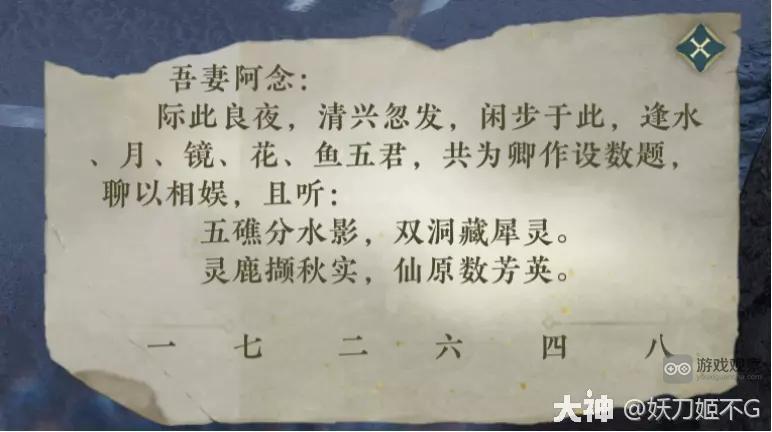 吾妻阿念：
际此良夜，清兴忽发，闲步于此，逢水
、月、镜、花、鱼五君，共为卿作设数题，
聊以相娱，且听：
五礁分水影，双洞藏犀灵。
灵鹿撷秋实，仙原数芳英。
一 七 二 六 四 八
游戏观察
大神 @妖刀姬不G